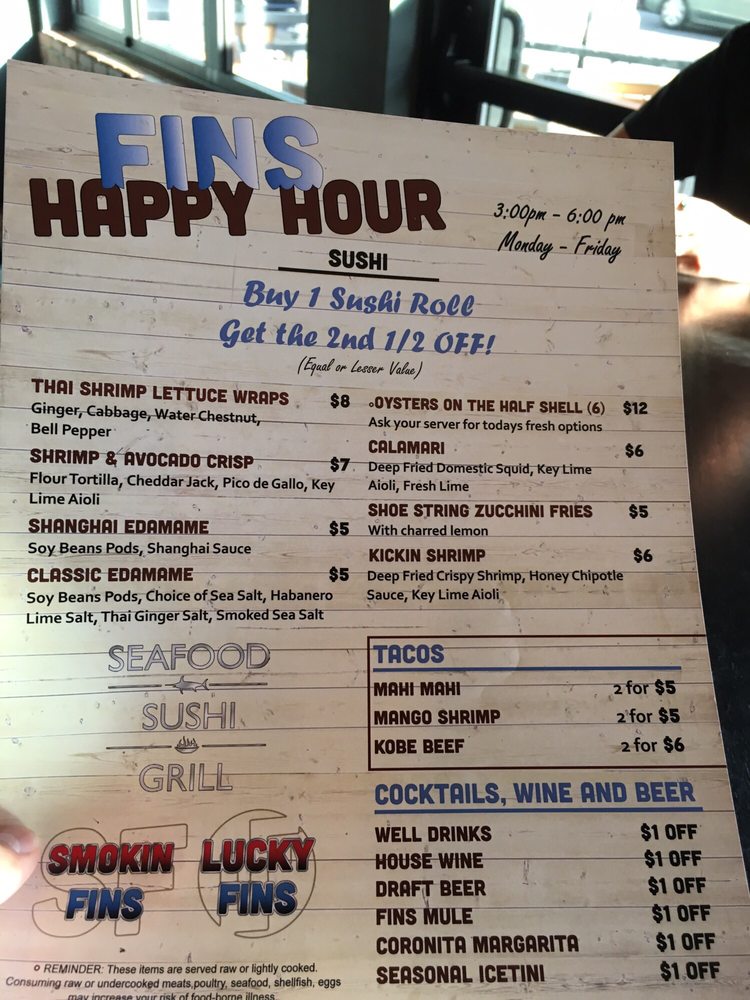 FINS
HAPPY HOUR
3:00pm - 6:00 pm
Monday - Friday
SUSHI
Buy 1 Sushi Roll
Get the 2nd 1/2 OFF!
(Equal or Lesser Value)
THAI SHRIMP LETTUCE WRAPS $8
Ginger, Cabbage, Water Chestnut,
Bell Pepper
SHRIMP & AVOCADO CRISP $7
Flour Tortilla, Cheddar Jack, Pico de Gallo, Key
Lime Aioli
SHANGHAI EDAMAME $5
Soy Beans Pods, Shanghai Sauce
CLASSIC EDAMAME $5
Soy Beans Pods, Choice of Sea Salt, Habanero
Lime Salt, Thai Ginger Salt, Smoked Sea Salt
°OYSTERS ON THE HALF SHELL (6) $12
Ask your server for todays fresh options
CALAMARI $6
Deep Fried Domestic Squid, Key Lime
Aioli, Fresh Lime
SHOE STRING ZUCCHINI FRIES $5
With charred lemon
KICKIN SHRIMP $6
Deep Fried Crispy Shrimp, Honey Chipotle
Sauce, Key Lime Aioli
SEAFOOD
SUSHI
GRILL
TACOS
MAHI MAHI 2 for $5
MANGO SHRIMP 2 for $5
KOBE BEEF 2 for $6
COCKTAILS, WINE AND BEER
WELL DRINKS $1 OFF
HOUSE WINE $1 OFF
DRAFT BEER $1 OFF
FINS MULE $1 OFF
CORONITA MARGARITA $1 OFF
SEASONAL ICETINI $1 OFF
SF
SMOKIN
FINS
LF
LUCKY
FINS
° REMINDER: These items are served raw or lightly cooked.
Consuming raw or undercooked meats,poultry, seafood, shellfish, eggs
may increase your risk of food-borne illness.